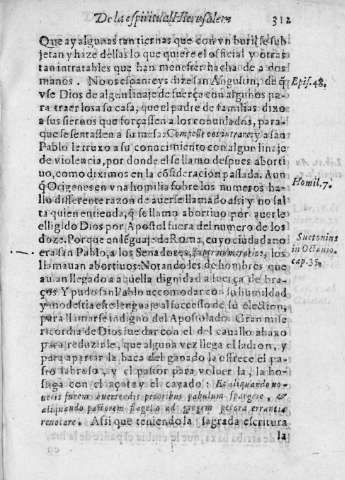 De la espiritual Hierusalem
312
Que ay algunas tan tiernas que con vn buril se sub
jetan y haze dellas lo que quiere el official y otras
tan intratables que han menester hacha de a dos
manos. No os espanteys dize san Augustin, de q̃
vse Dios de algun linaje de fuerça con algunos pa-
ra traerlos a su casa, que el padre de familias dixo
a sus sieruos que forçassen a los conuidados, para-
que se sentassen a su mesa: Compelle eos intrare: y a san
Pablo le truxo a su conocimiento con algun linaje
de violencia, por donde el se llamo despues abortiuo,
como diximos en la cõsideracion passada. Aun
q̃ Origenes en vna homilia sobre los numeros ha-
llo differente razon de auerse llamado assi y no fal
ta quien entienda, q̃ se llamo abortiuo por auerle
elligido Dios por Apostol fuera del numero de los
doze. Porque en lẽguaje de Roma, cuyo ciudadano
era san Pablo, a los Senadores, los
llamauan abortiuos: Notandoles de hombres que
auian llegado a aquella dignidad a fuerça de bra-
ços Y pudo san Pablo accomodar con su humildad
y modestia este lenguaje al successo de su election,
para llamarse indigno del Apostolado. Gran mise
ricordia de Dios fue dar con el del cauallo abaxo
para reduzirle, que alguna vez llega el ladron, y
para apartar la baca del ganado la ofrece el pa-
sto sabroso, y el pastor para voluer la, la ho-
stiga con el açote y el cayado: Et aliquando no-
ueris furem auertendis pecoribus pabulum spargere, &
aliquando pastorem flagello ad gregem pecora errantia
reuocare. Assi que teniendo la sagrada escritura
la
Epis. 48.
Homil. 7.
Suetonius
in Octauio.
cap. 35.